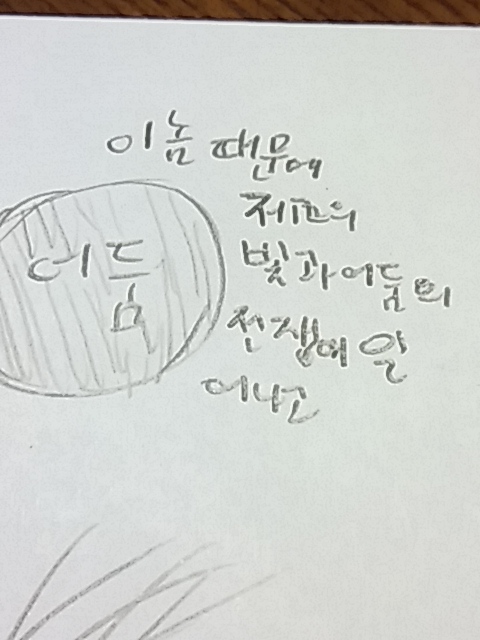 이놈 때문에
제고의
빛과 어둠의
전쟁에 일
어나고
어둠